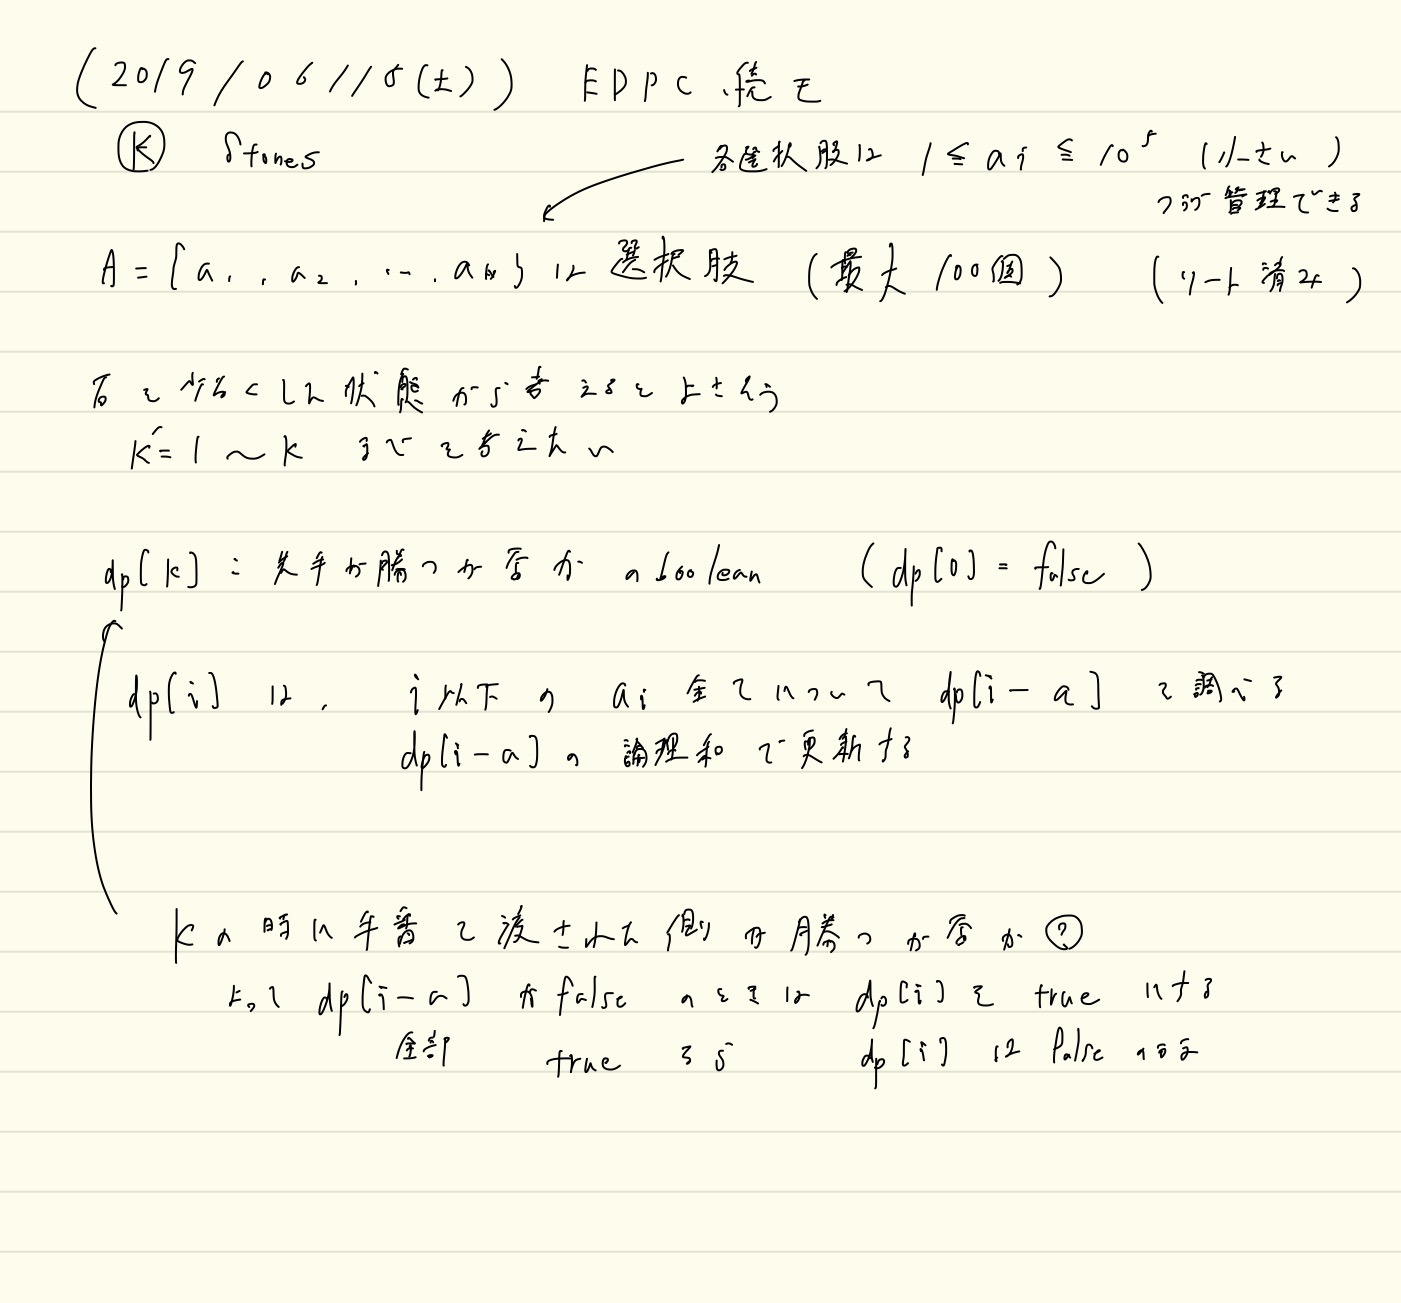 (2019/06/15(土)) EDPC 続き
Ⓚ Stones
各選択肢は 1 ≦ ai ≦ 10^5 (小さい)
つまり管理できる
A = {a1, a2, ..., aN} は 選択肢 (最大 100個) (ソート済み)
石を少なくした状態から考えるとよさそう
K'=1 〜 K までを考えたい
dp[K] : 先手が勝つか否か のboolean (dp[0] = false)
dp[i] は, i以下 の ai 全てについて dp[i-a] を調べる
dp[i-a] の 論理和 で更新する
K の 時に手番を渡された側が勝つか否か ?
よって dp[i-a] が false のときは dp[i] を true にする
全部 true なら dp[i] は false のまま